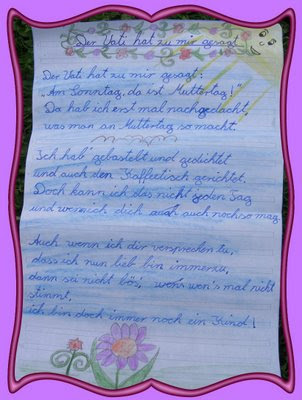 Der Vati hat zu mir gesagt
Der Vati hat zu mir gesagt:
„Am Sonntag, da ist Muttertag!"
Da hab ich erst mal nachgedacht,
was man an Muttertag so macht.
Ich hab' gebastelt und gedichtet
und auch den Kaffeetisch gerichtet.
Doch kann ich das nicht jeden Tag
und wenn ich dich auch auch noch so mag.
Auch wenn ich dir versprechen tu,
dass ich nun lieb bin immerzu,
dann sei nicht bös, wenn's mal nicht
stimmt,
ich bin doch immer noch ein Kind!